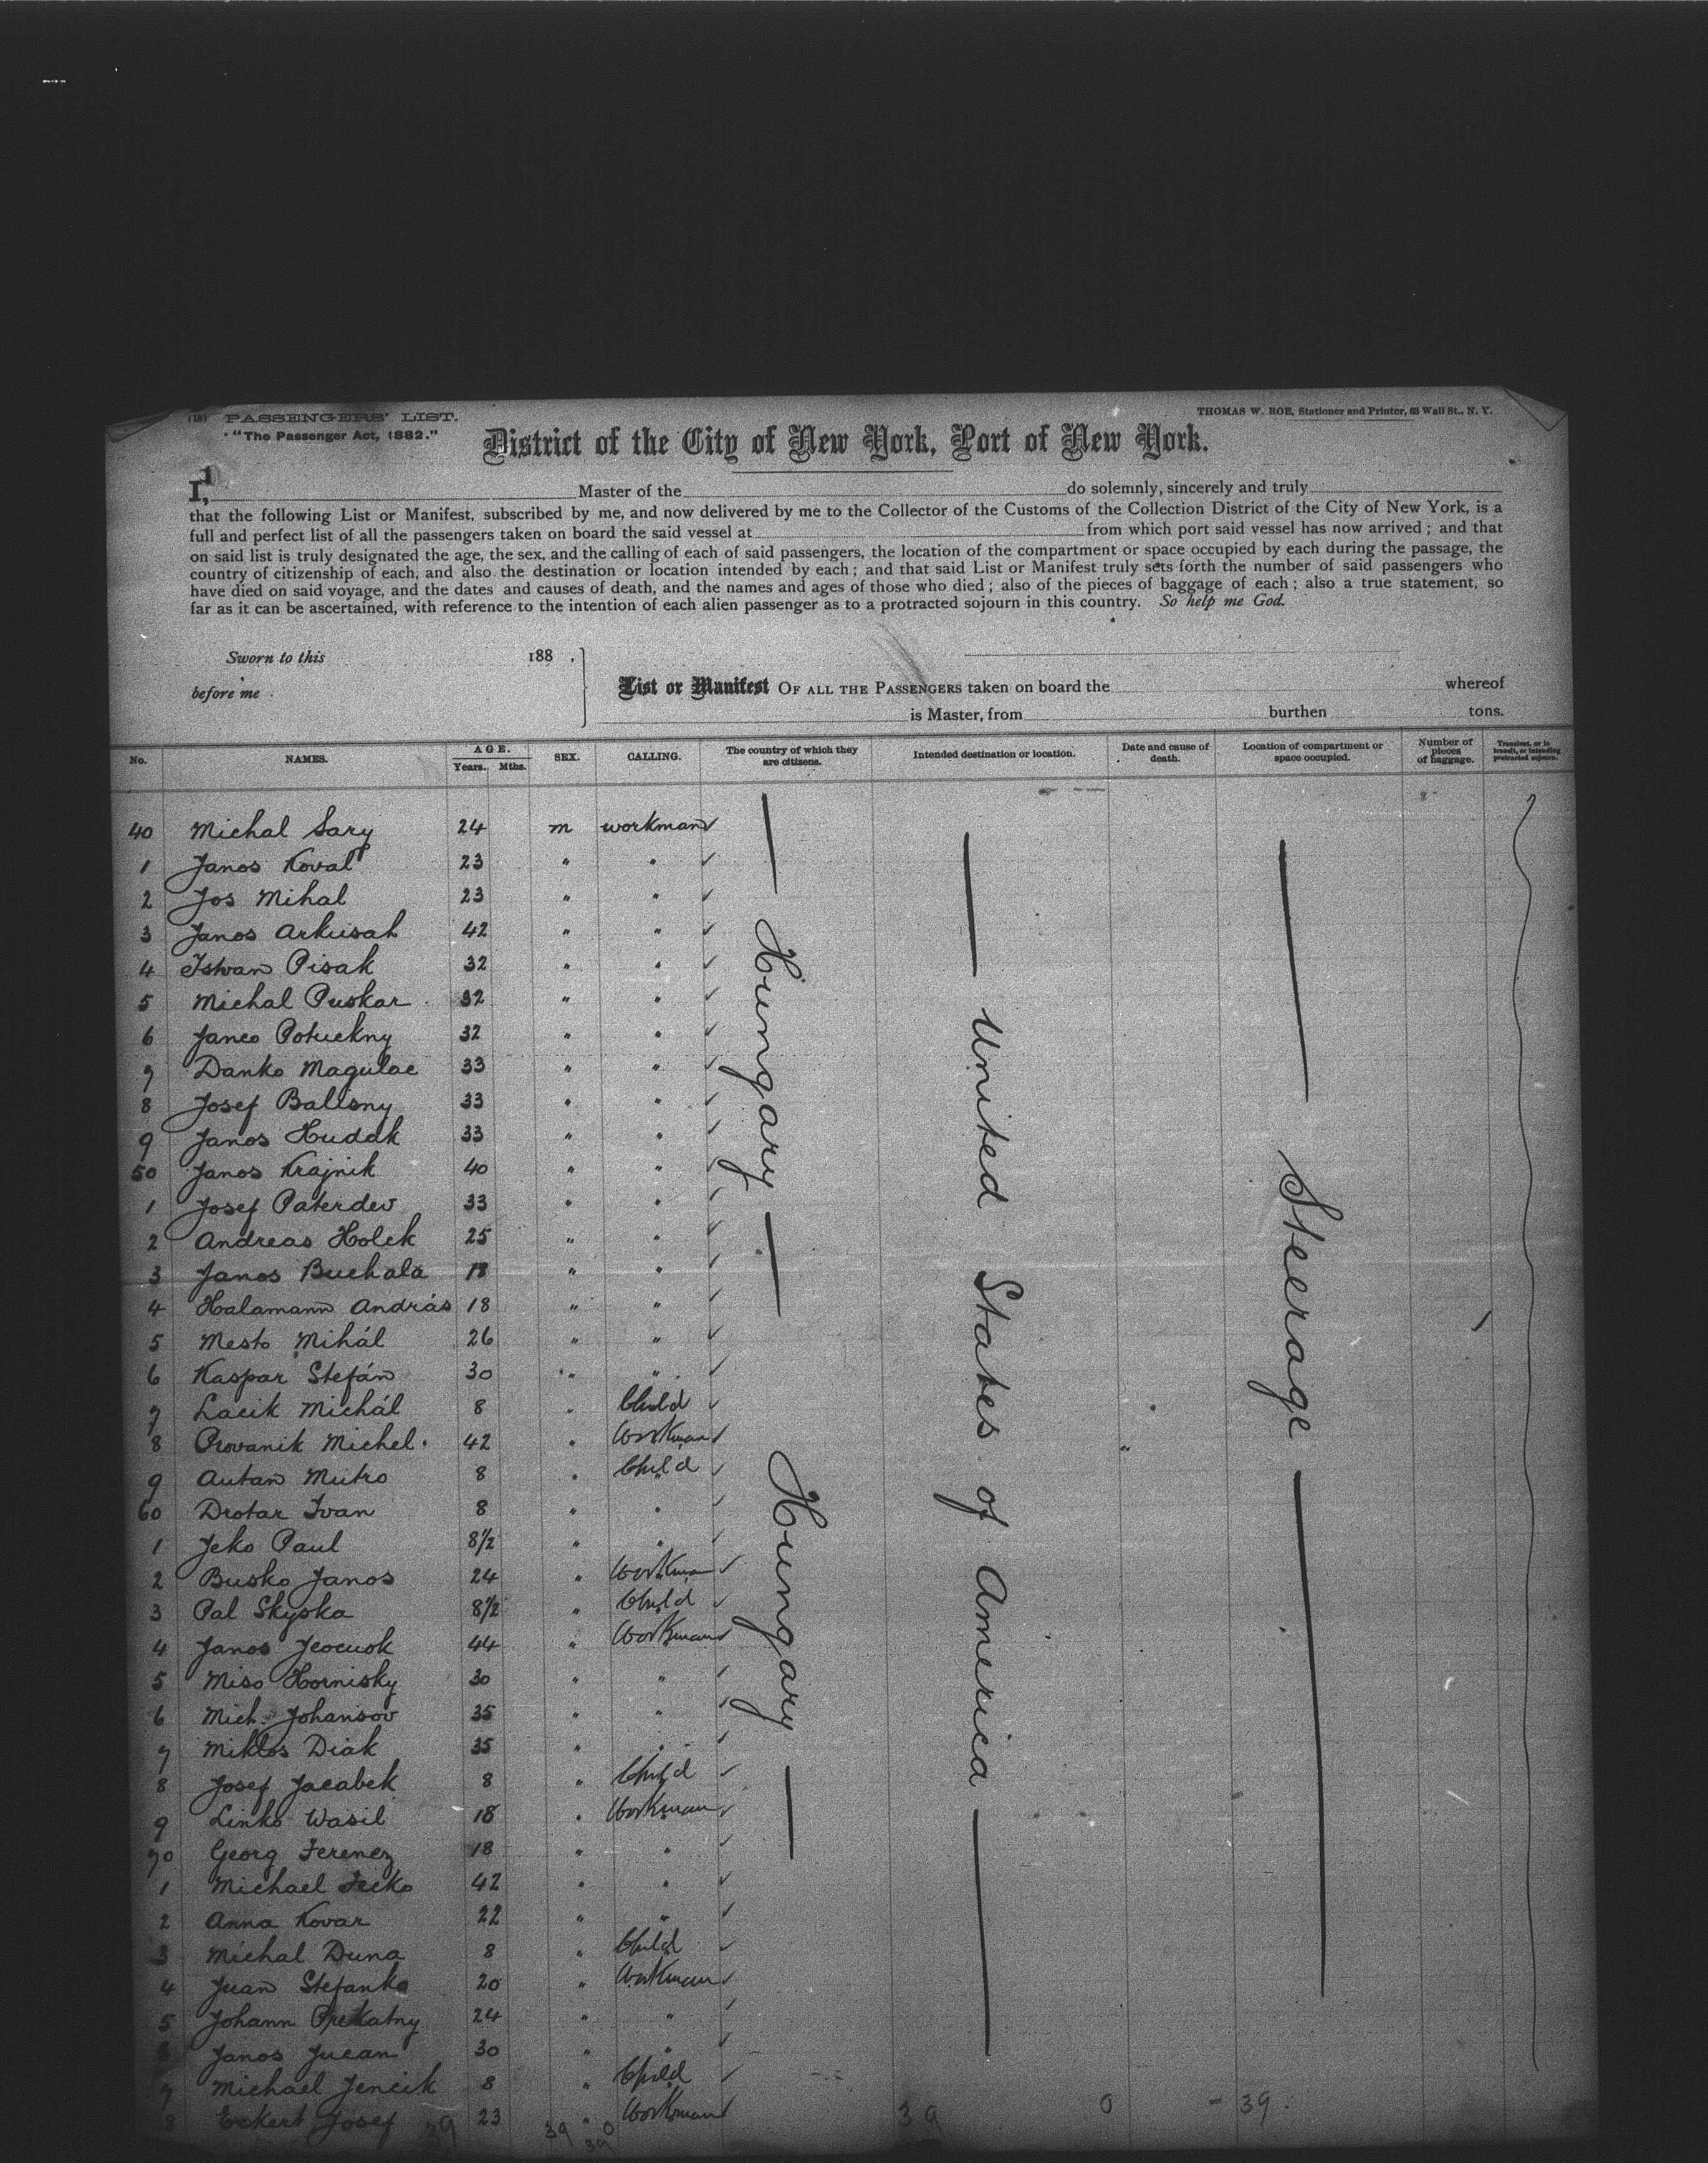 (18) PASSENGERS' LIST.
THOMAS W. ROE, Stationer and Printer, 63 Wall St., N. Y.
"The Passenger Act, 1882."
District of the City of New York, Port of New York.
I, Master of the do solemnly, sincerely and truly
that the following List or Manifest, subscribed by me, and now delivered by me to the Collector of the Customs of the Collection District of the City of New York, is a
full and perfect list of all the passengers taken on board the said vessel at from which port said vessel has now arrived ; and that
on said list is truly designated the age, the sex, and the calling of each of said passengers, the location of the compartment or space occupied by each during the passage, the
country of citizenship of each, and also the destination or location intended by each ; and that said List or Manifest truly sets forth the number of said passengers who
have died on said voyage, and the dates and causes of death, and the names and ages of those who died ; also of the pieces of baggage of each ; also a true statement, so
far as it can be ascertained, with reference to the intention of each alien passenger as to a protracted sojourn in this country. So help me God.
Sworn to this 188 .
before me
List or Manifest OF ALL THE PASSENGERS taken on board the whereof
is Master, from burthen tons.
No. NAMES. AGE. Years. Mths. SEX. CALLING. The country of which they are citizens. Intended destination or location. Date and cause of death. Location of compartment or space occupied. Number of pieces of baggage. Transient, or in transit, or intending protracted sojourn.
40 Michal Sary 24 m workman
1 Janos Koval 23 " "
2 Jos Mihal 23 " "
3 Janos Arkusah 42 " "
4 Istvan Pisak 32 " "
5 Michal Puskar 32 " "
6 Janco Potuckny 32 " "
7 Danko Magulac 33 " "
8 Josef Balisny 33 " "
9 Janos Hudak 33 " "
50 Janos Krajnik 40 " "
1 Josef Paterdev 33 " "
2 Andreas Holck 25 " "
3 Janos Buchala 18 " "
4 Halamann András 18 " "
5 Mesto Mihál 26 " "
6 Kaspar Stefán 30 " "
7 Lacik Michál 8 " Child
8 Provanik Michel 42 " Workman
9 Autan Mutro 8 " Child
60 Drotar Ivan 8 " "
1 Jeko Paul 8 1/2 " "
2 Busko Janos 24 " Workman
3 Pal Skyska 8 1/2 " Child
4 Janos 44 " Workman
5 Miso Hornisky 30 " "
6 Mich. Johansov 35 " "
7 Miklos Diak 35 " "
8 Josef Jacabek 8 " Child
9 Linko Wasil 18 " Workman
70 Georg Ferencz 18 " "
1 Michael Fecko 42 " "
2 Anna Kovar 22 " "
3 Michal Duna 8 " Child
4 Juan Stefanko 20 " Workman
5 Johann 24 " "
6 Janos Jucan 30 " "
7 Michael Jencik 8 " Child
8 Eckert Josef 23 " Workman
Hungary
Hungary
United States of America
Steerage
39 39 0 39 39 0 - 39.